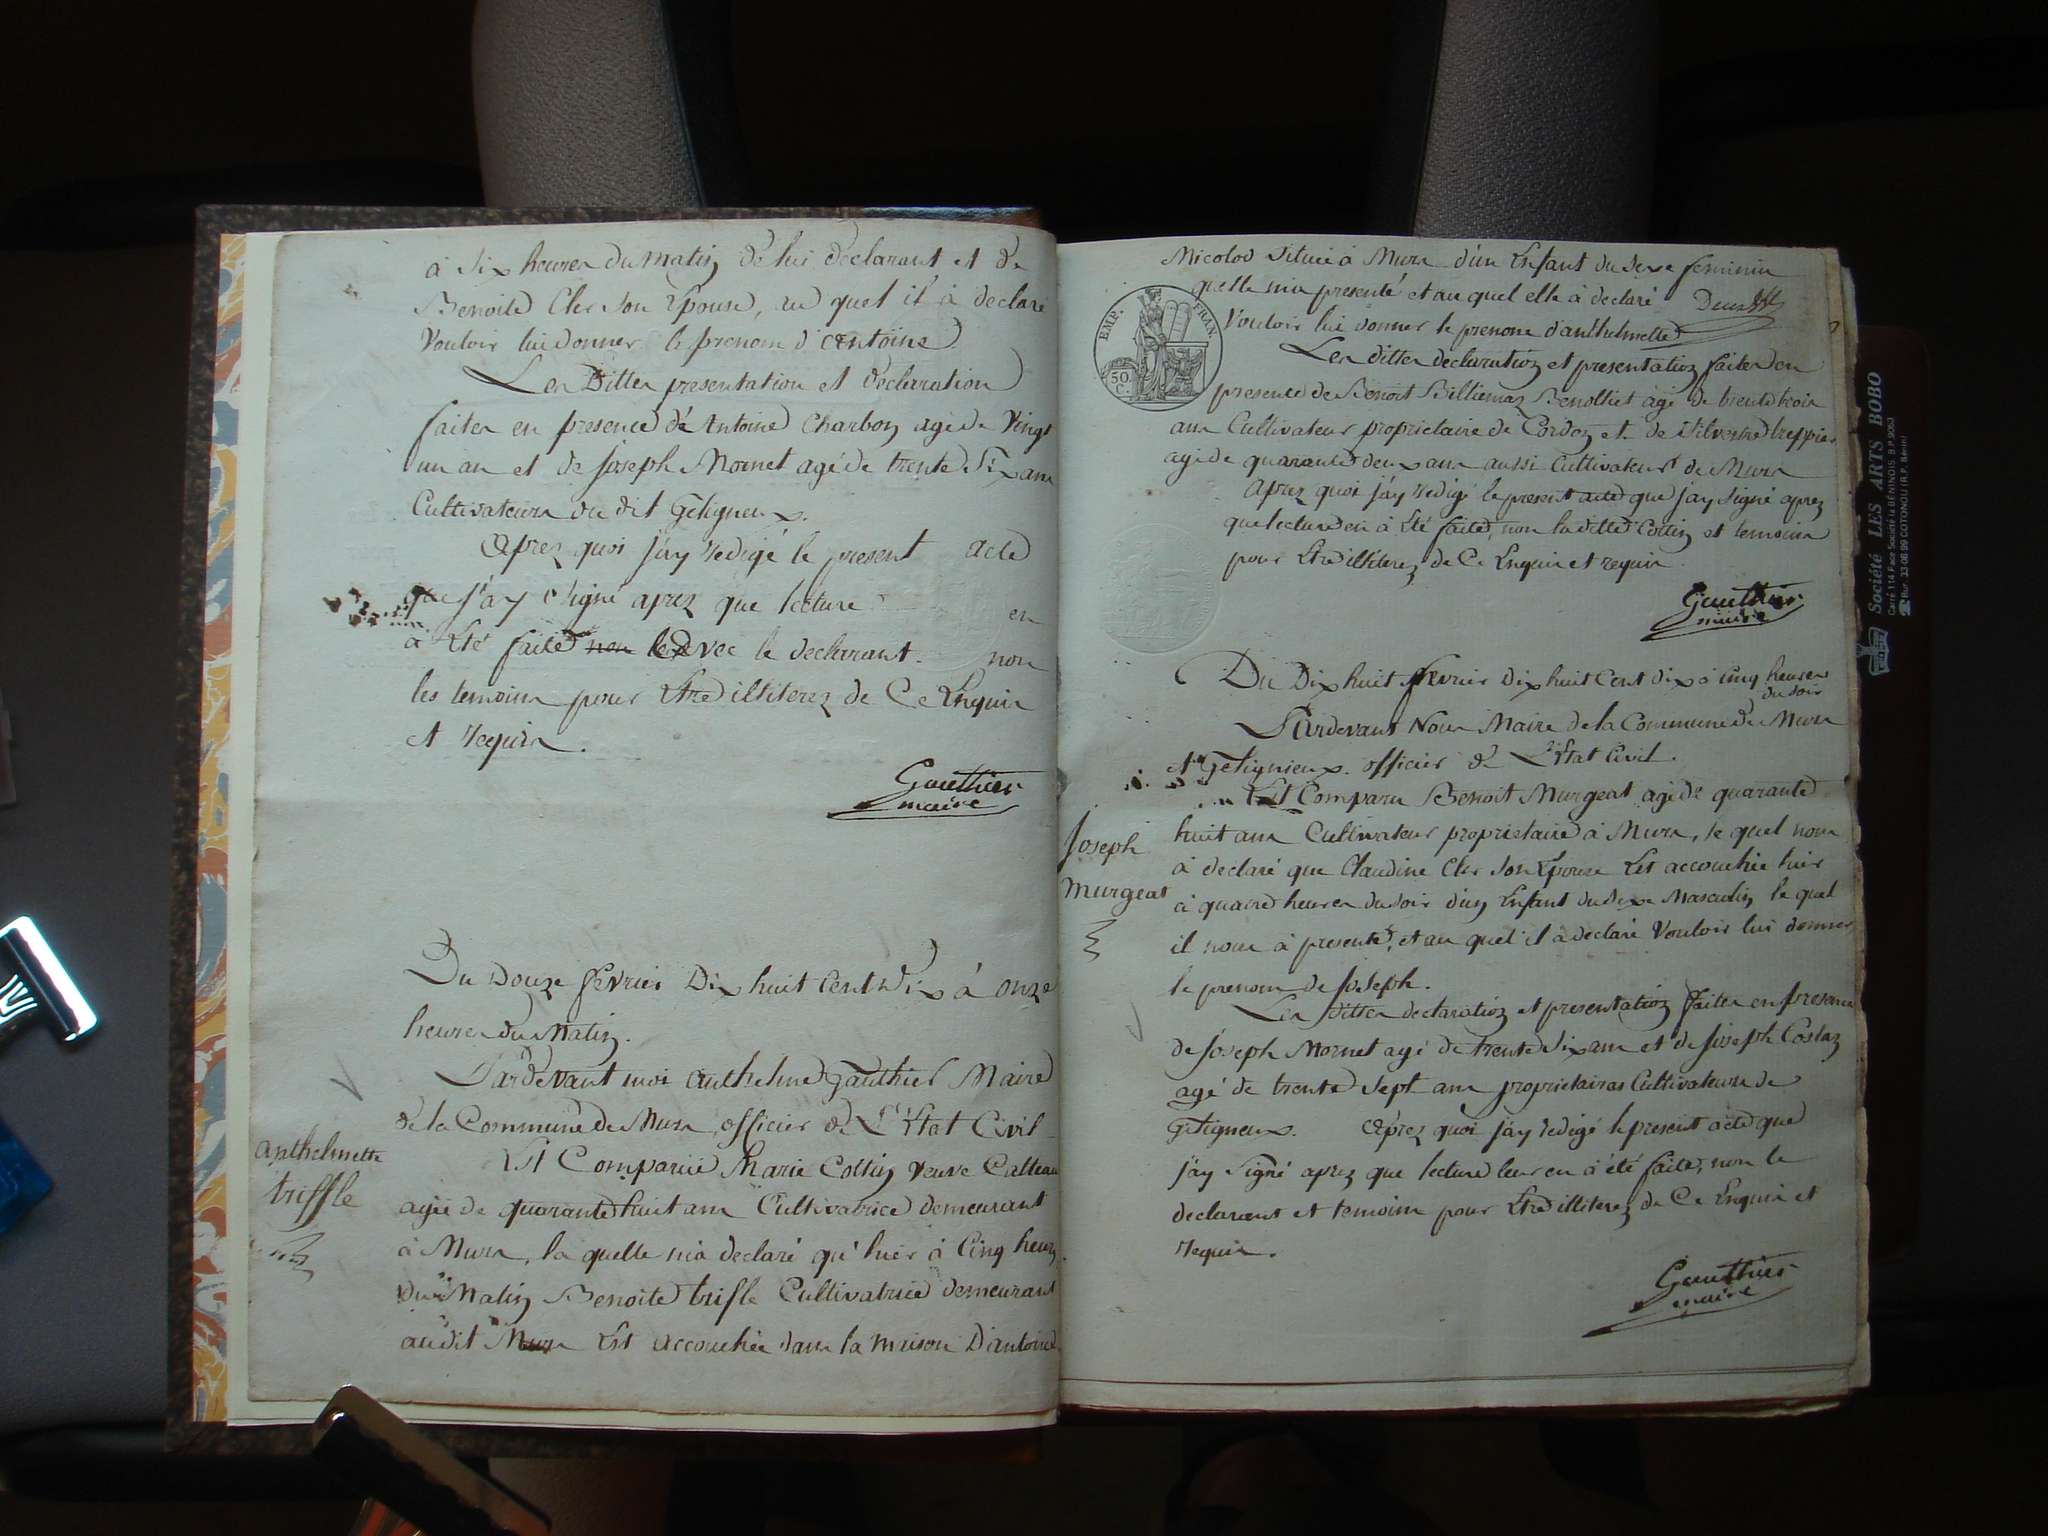 à six heures du matin de lui declarant et de
Benoite Cler son Epouse, au quel il à declaré
Vouloir lui donner le prenom d'Antoine
Les Dittes presentation et declaration
faites en presence de Antoine Charbon agé de Vingt
un an et de Joseph Mornet agé de trente Six ans
Cultivateurs du dit Geligneux.
Après quoi j'ay redigé le present acte
que j'ay signé après que lecture en
à Eté faite avec le declarant non
les temoins pour Etre illiterez de Ce Enquis
et requis.
Gauthier
maire
Du Douze fevrier Dix huit Cent Dix à onze
heures du Matin.
Pardevant moi Anthelme Gauthier Maire
de la Commune de Murs officier de L'Etat Civil
Anthelmette
triffle
Est Comparüe Marie Cottin Veuve
agée de quarante huit ans Cultivatrice demeurant
à Murs, la quelle m'a declaré qu'hier à Cinq heures
du Matin Benoite trifle Cultivatrice demeurant
audit Murs Est accouchée dans la maison D'antoine
Nicolod située à Murs d'un Enfant du sexe feminin
quelle m'a presenté et au quel elle à declaré
Vouloir lui donner le prenom d'anthelmette
EMP. FRAN.
50 C.
Les dittes declaration et presentation faites en
presence de Benoit Billiemaz Benolliet agé de trente trois
ans Cultivateur proprietaire de Cordon et de Silvestre treppier
agé de quarante deux ans aussi Cultivateur de Murs
Après quoi j'ay redigé le present acte que j'ay signé après
que lecture en à Eté faite, non la ditte Cottin et temoins
pour Etre illiterez de Ce Enquis et requis.
Gauthier
maire
Du Dix huit fevrier Dix huit Cent dix à cinq heures
du soir
Pardevant Nous Maire de la Commune de Murs
et Geligneux. officier de L'Etat Civil.
Est Comparu Benoit Murgeat agé de quarante
Joseph
Murgeat
huit ans Cultivateur proprietaire à Murs, le quel nous
à declaré que Claudine Cler son Epouse Est accouchée hier
à quatre heures du soir d'un Enfant du sexe Masculin le quel
il nous à presenté, et au quel il à declaré Vouloir lui donner
le prenom de Joseph.
Les dittes declaration et presentation faites en presence
de Joseph Mornet agé de trente six ans et de Joseph Costaz
agé de trente Sept ans proprietaires Cultivateurs de
Geligneux. Après quoi j'ay redigé le present acte que
j'ay signé après que lecture leur en à été faite, non le
declarant et temoins pour Etre illiterez de Ce Enquis et
requis.
Gauthier
maire
Société LES ARTS BOBO
Carré 114 Face Société la BÉNINOIS B.P 9053
Bur. 33 06 99 COTONOU (R.P. Bénin)